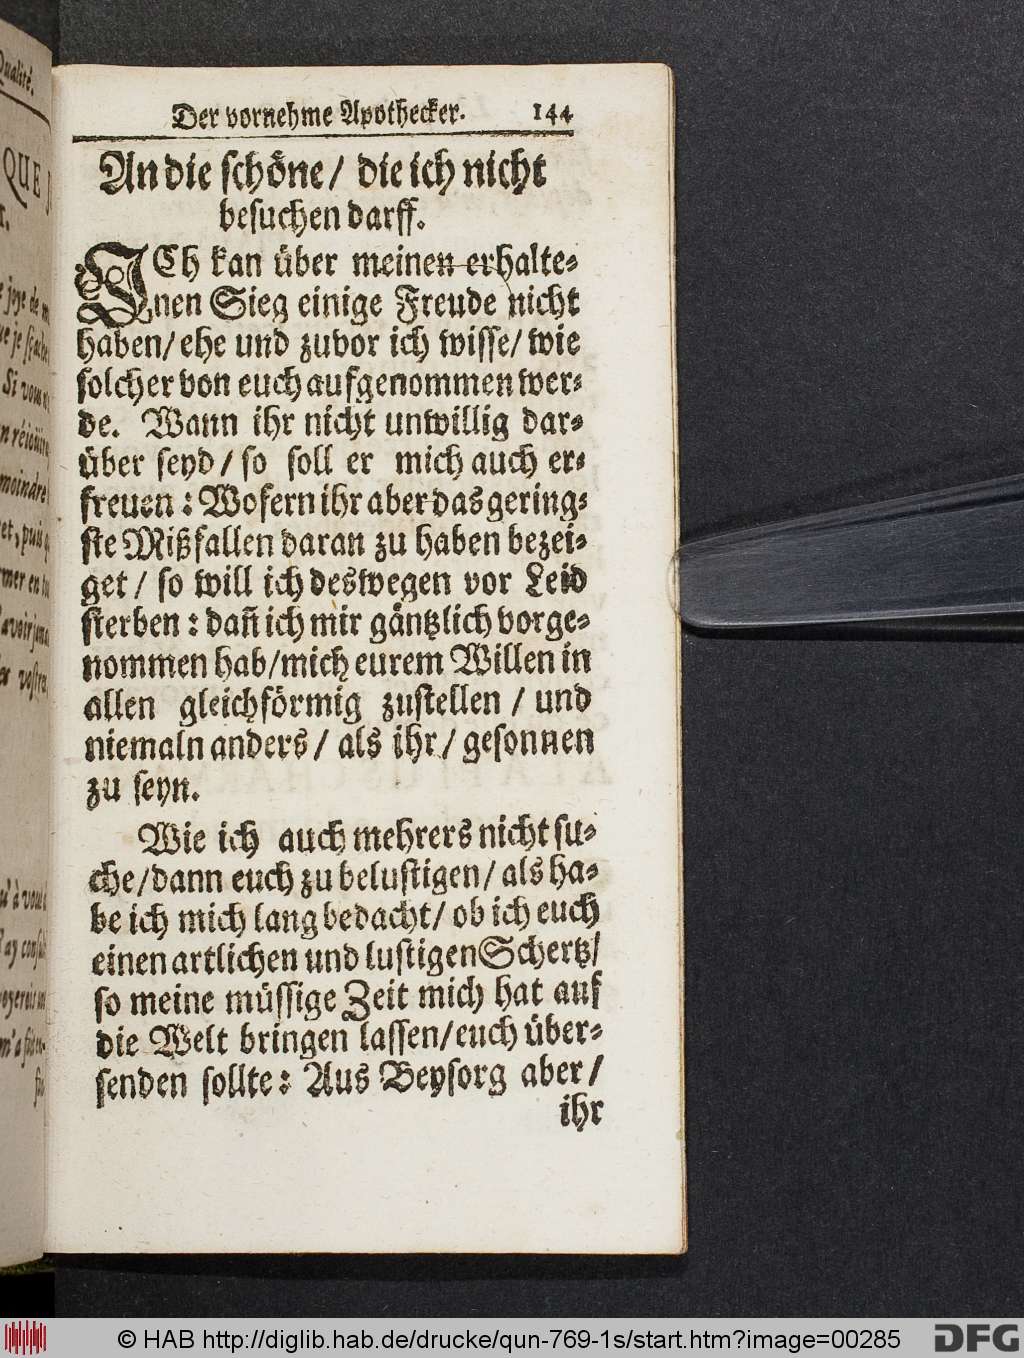 Qualité.
QUE J
Der vornehme Apothecker. 144
An die schöne / die ich nicht
besuchen darff.
ICh kan über meinen erhalte⸗
nen Sieg einige Freude nicht
haben / ehe und zuvor ich wisse / wie
solcher von euch aufgenommen wer⸗
de. Wann ihr nicht unwillig dar⸗
über seyd / so soll er mich auch er⸗
freuen : Wofern ihr aber das gering⸗
ste Mißfallen daran zu haben bezei⸗
get / so will ich deswegen vor Leid
sterben : dañ ich mir gäntzlich vorge⸗
nommen hab / mich eurem Willen in
allen gleichförmig zustellen / und
niemaln anders / als ihr / gesonnen
zu seyn.
Wie ich auch mehrers nicht su⸗
che / dann euch zu belustigen / als ha⸗
be ich mich lang bedacht / ob ich euch
einen artlichen und lustigen Schertz /
so meine müssige Zeit mich hat auf
die Welt bringen lassen / euch über⸗
senden sollte : Aus Beysorg aber /
ihr
© HAB http://diglib.hab.de/drucke/qun-769-1s/start.htm?image=00285
DFG